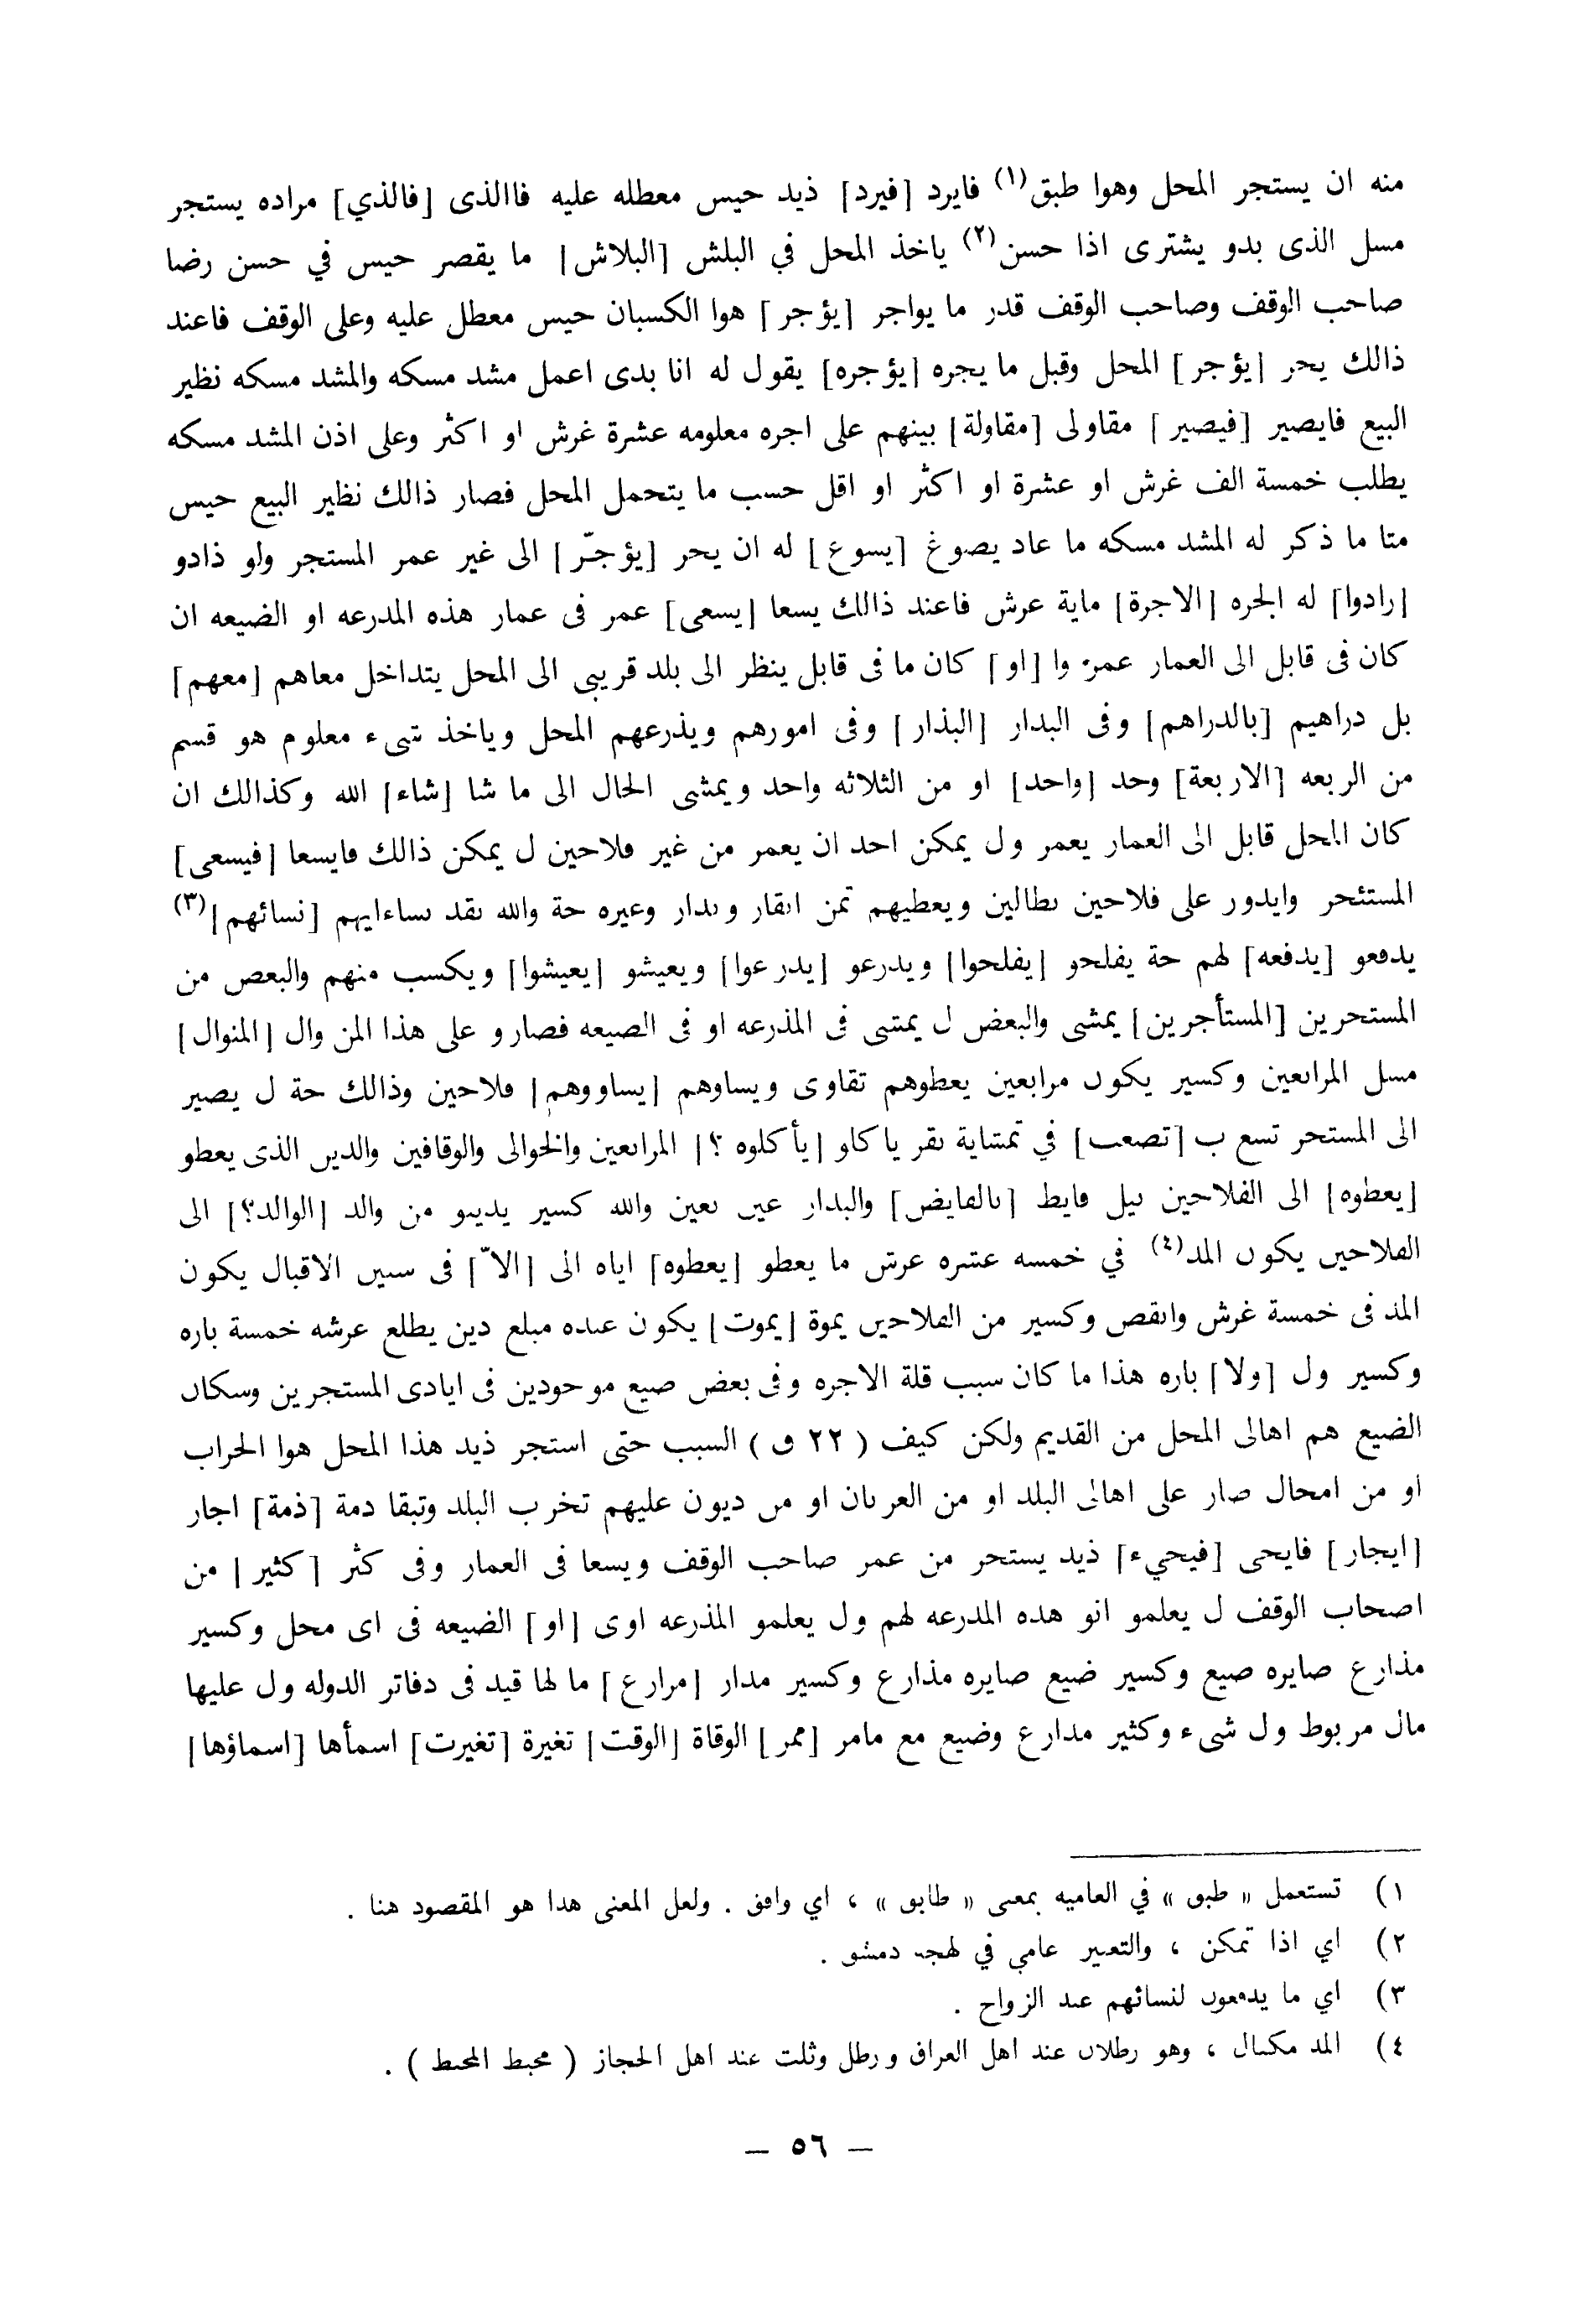 منه ان يستجر المحل وهوا طبق(١) فايرد [فيرد] ذيد حيس معطله عليه فاالذى [فالذي] مراده يستجر
مسل الذى بدو يشترى اذا حسن(٢) ياخذ المحل في البلش [البلاش] ما يقصر حيس في حسن رضا
صاحب الوقف وصاحب الوقف قدر ما يواجر [يؤجر] هوا الكسبان حيس معطل عليه وعلى الوقف فاعند
ذالك يجر [يؤجر] المحل وقبل ما يجره [يؤجره] يقول له انا بدى اعمل مشد مسكه والمشد مسكه نظير
البيع فايصير [فيصير] مقاولى [مقاولة] بينهم على اجره معلومه عشرة غرش او اكثر وعلى اذن المشد مسكه
يطلب خمسة الف غرش او عشرة او اكثر او اقل حسب ما يتحمل المحل فصار ذالك نظير البيع حيس
متا ما ذكر له المشد مسكه ما عاد يصوغ [يسوع] له ان يحر [يؤجّر] الى غير عمر المستجر ولو ذادو
[رادوا] له الجره [الاجرة] ماية عرش فاعند ذالك يسعا [يسعى] عمر فى عمار هذه المدرعه او الضيعه ان
كان فى قابل الى العمار عمره وا [او] كان ما فى قابل ينظر الى بلد قريبى الى المحل يتداخل معاهم [معهم]
بل دراهيم [بالدراهم] وفى البدار [البذار] وفى امورهم ويذرعهم المحل وياخذ شىء معلوم هو قسم
من الربعه [الاربعة] وحد [واحد] او من الثلاثه واحد ويمشى الحال الى ما شا [شاء] الله وكذالك ان
كان المحل قابل الى العمار يعمر ول يمكن احد ان يعمر من غير فلاحين ل يمكن ذالك فايسعا [فيسعى]
المستئحر وايدور على فلاحين بطالين ويعطيهم تمن ابقار وبدار وعيره حة والله نقد نساءايهم [نسائهم](٣)
يدفعو [يدفعه] لهم حة يفلحو [يفلحوا] ويدرعو [يدرعوا] ويعيشو [يعيشوا] ويكسب منهم والبعص من
المستحرين [المستأجرين] يمشى والبعض ل يمشى فى المذرعه او فى الصيعه فصارو على هذا المن وال [المنوال]
مسل المرابعين وكسير يكون مرابعين يعطوهم تقاوى ويساوهم [يساووهم] فلاحين وذالك حة ل يصير
الى المستحر تسع ب [تصعب] في تمشاية بقر ياكاو [يأكلوه ؟] المرابعين والخوالى والوقافين والدين الذى يعطو
[يعطوه] الى الفلاحين بيل فايط [بالفايض] والبدار عين بعين والله كسير يديبو من والد [الوالد؟] الى
الفلاحين يكون المد(٤) في خمسه عشره عرش ما يعطو [يعطوه] اياه الى [الاّ] فى سنين الاقبال يكون
المد فى خمسة غرش وانقص وكسير من الفلاحين يموة [يموت] يكون عنده مبلع دين يطلع عرشه خمسة باره
وكسير ول [ولا] باره هذا ما كان سبب قلة الاجره وفى بعض صيع موحودين فى ايادى المستجرين وسكان
الضيع هم اهالى المحل من القديم ولكن كيف ( ٢٢ ق ) السبب حتى استجر ذيد هذا المحل هوا الحراب
او من امحال صار على اهالى البلد او من العربان او من ديون عليهم تخرب البلد وتبقا دمة [ذمة] اجار
[ايجار] فايحى [فيحيء] ذيد يستحر من عمر صاحب الوقف ويسعا فى العمار وفى كثر [كثير] من
اصحاب الوقف ل يعلمو انو هده المدرعه لهم ول يعلمو المذرعه اوى [او] الضيعه فى اى محل وكسير
مذارع صايره صيع وكسير ضيع صايره مذارع وكسير مدار [مرارع] ما لها قيد فى دفاتر الدوله ول عليها
مال مربوط ول شىء وكثير مدارع وضيع مع مامر [ممر] الوقاة [الوقت] تغيرة [تغيرت] اسمأها [اسماؤها]
١) تستعمل « طبق » في العاميه بمعنى « طابق » ، اي وافق . ولعل المعنى هدا هو المقصود هنا .
٢) اي اذا تمكن ، والتعبير عامي في لهجة دمشق .
٣) اي ما يدفعون لنسائهم عند الزواج .
٤) المد مكيال ، وهو رطلان عند اهل العراق ورطل وثلت عند اهل الحجاز ( محيط المحيط ) .
— ٥٦ —